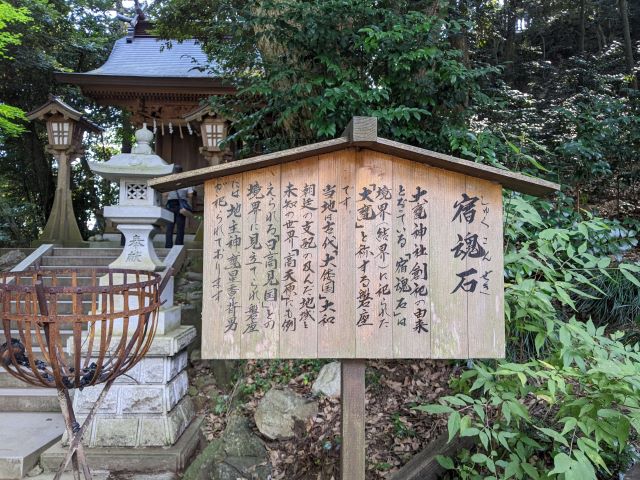 宿魂石
しゅく こん せき
大甕神社創祀の由来
となっている「宿魂石」は
境界(結界)に祀られた
「大甕」を称する磐座
です。
当地は古代「大倭国」大和
朝廷の支配の及んだ地域と
未知の世界「高天 」にも例
えられる「日高見国」との
境界に見立てられ磐座
には地主神甕星香々背男
が祀られております
奉献